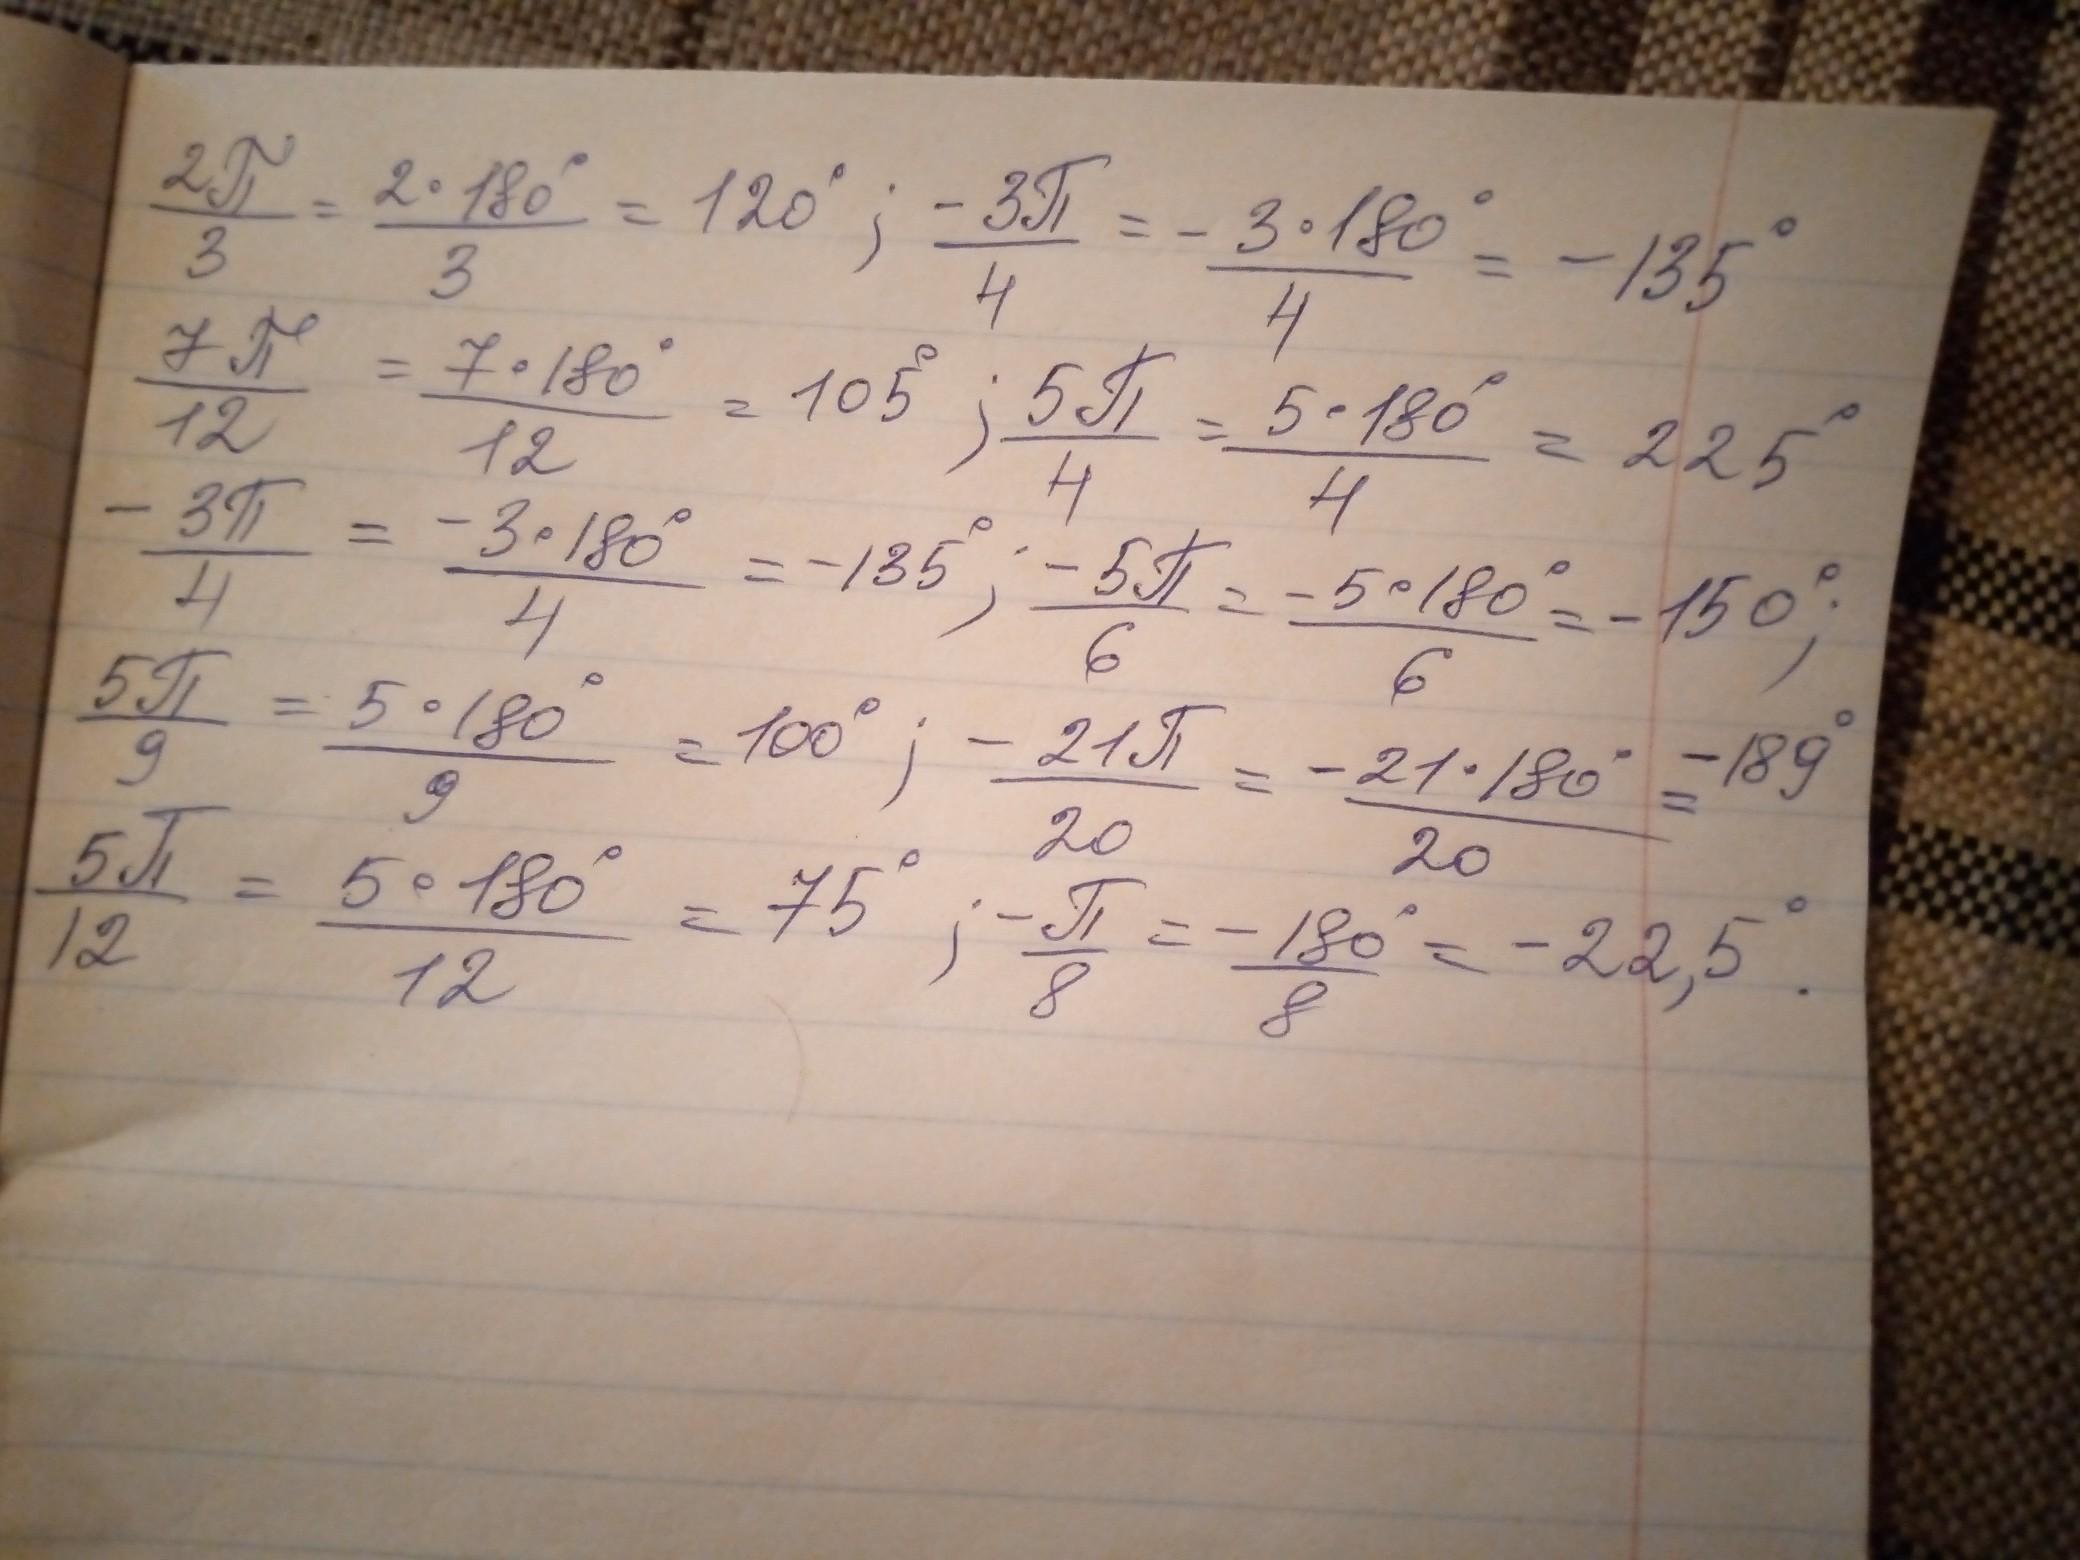 2π/3 = 2·180°/3 = 120°; -3π/4 = -3·180°/4 = -135°
7π/12 = 7·180°/12 = 105°; 5π/4 = 5·180°/4 = 225°
-3π/4 = -3·180°/4 = -135°; -5π/6 = -5·180°/6 = -150°;
5π/9 = 5·180°/9 = 100°; -21π/20 = -21·180°/20 = -189°
5π/12 = 5·180°/12 = 75°; -π/8 = -180°/8 = -22,5°.